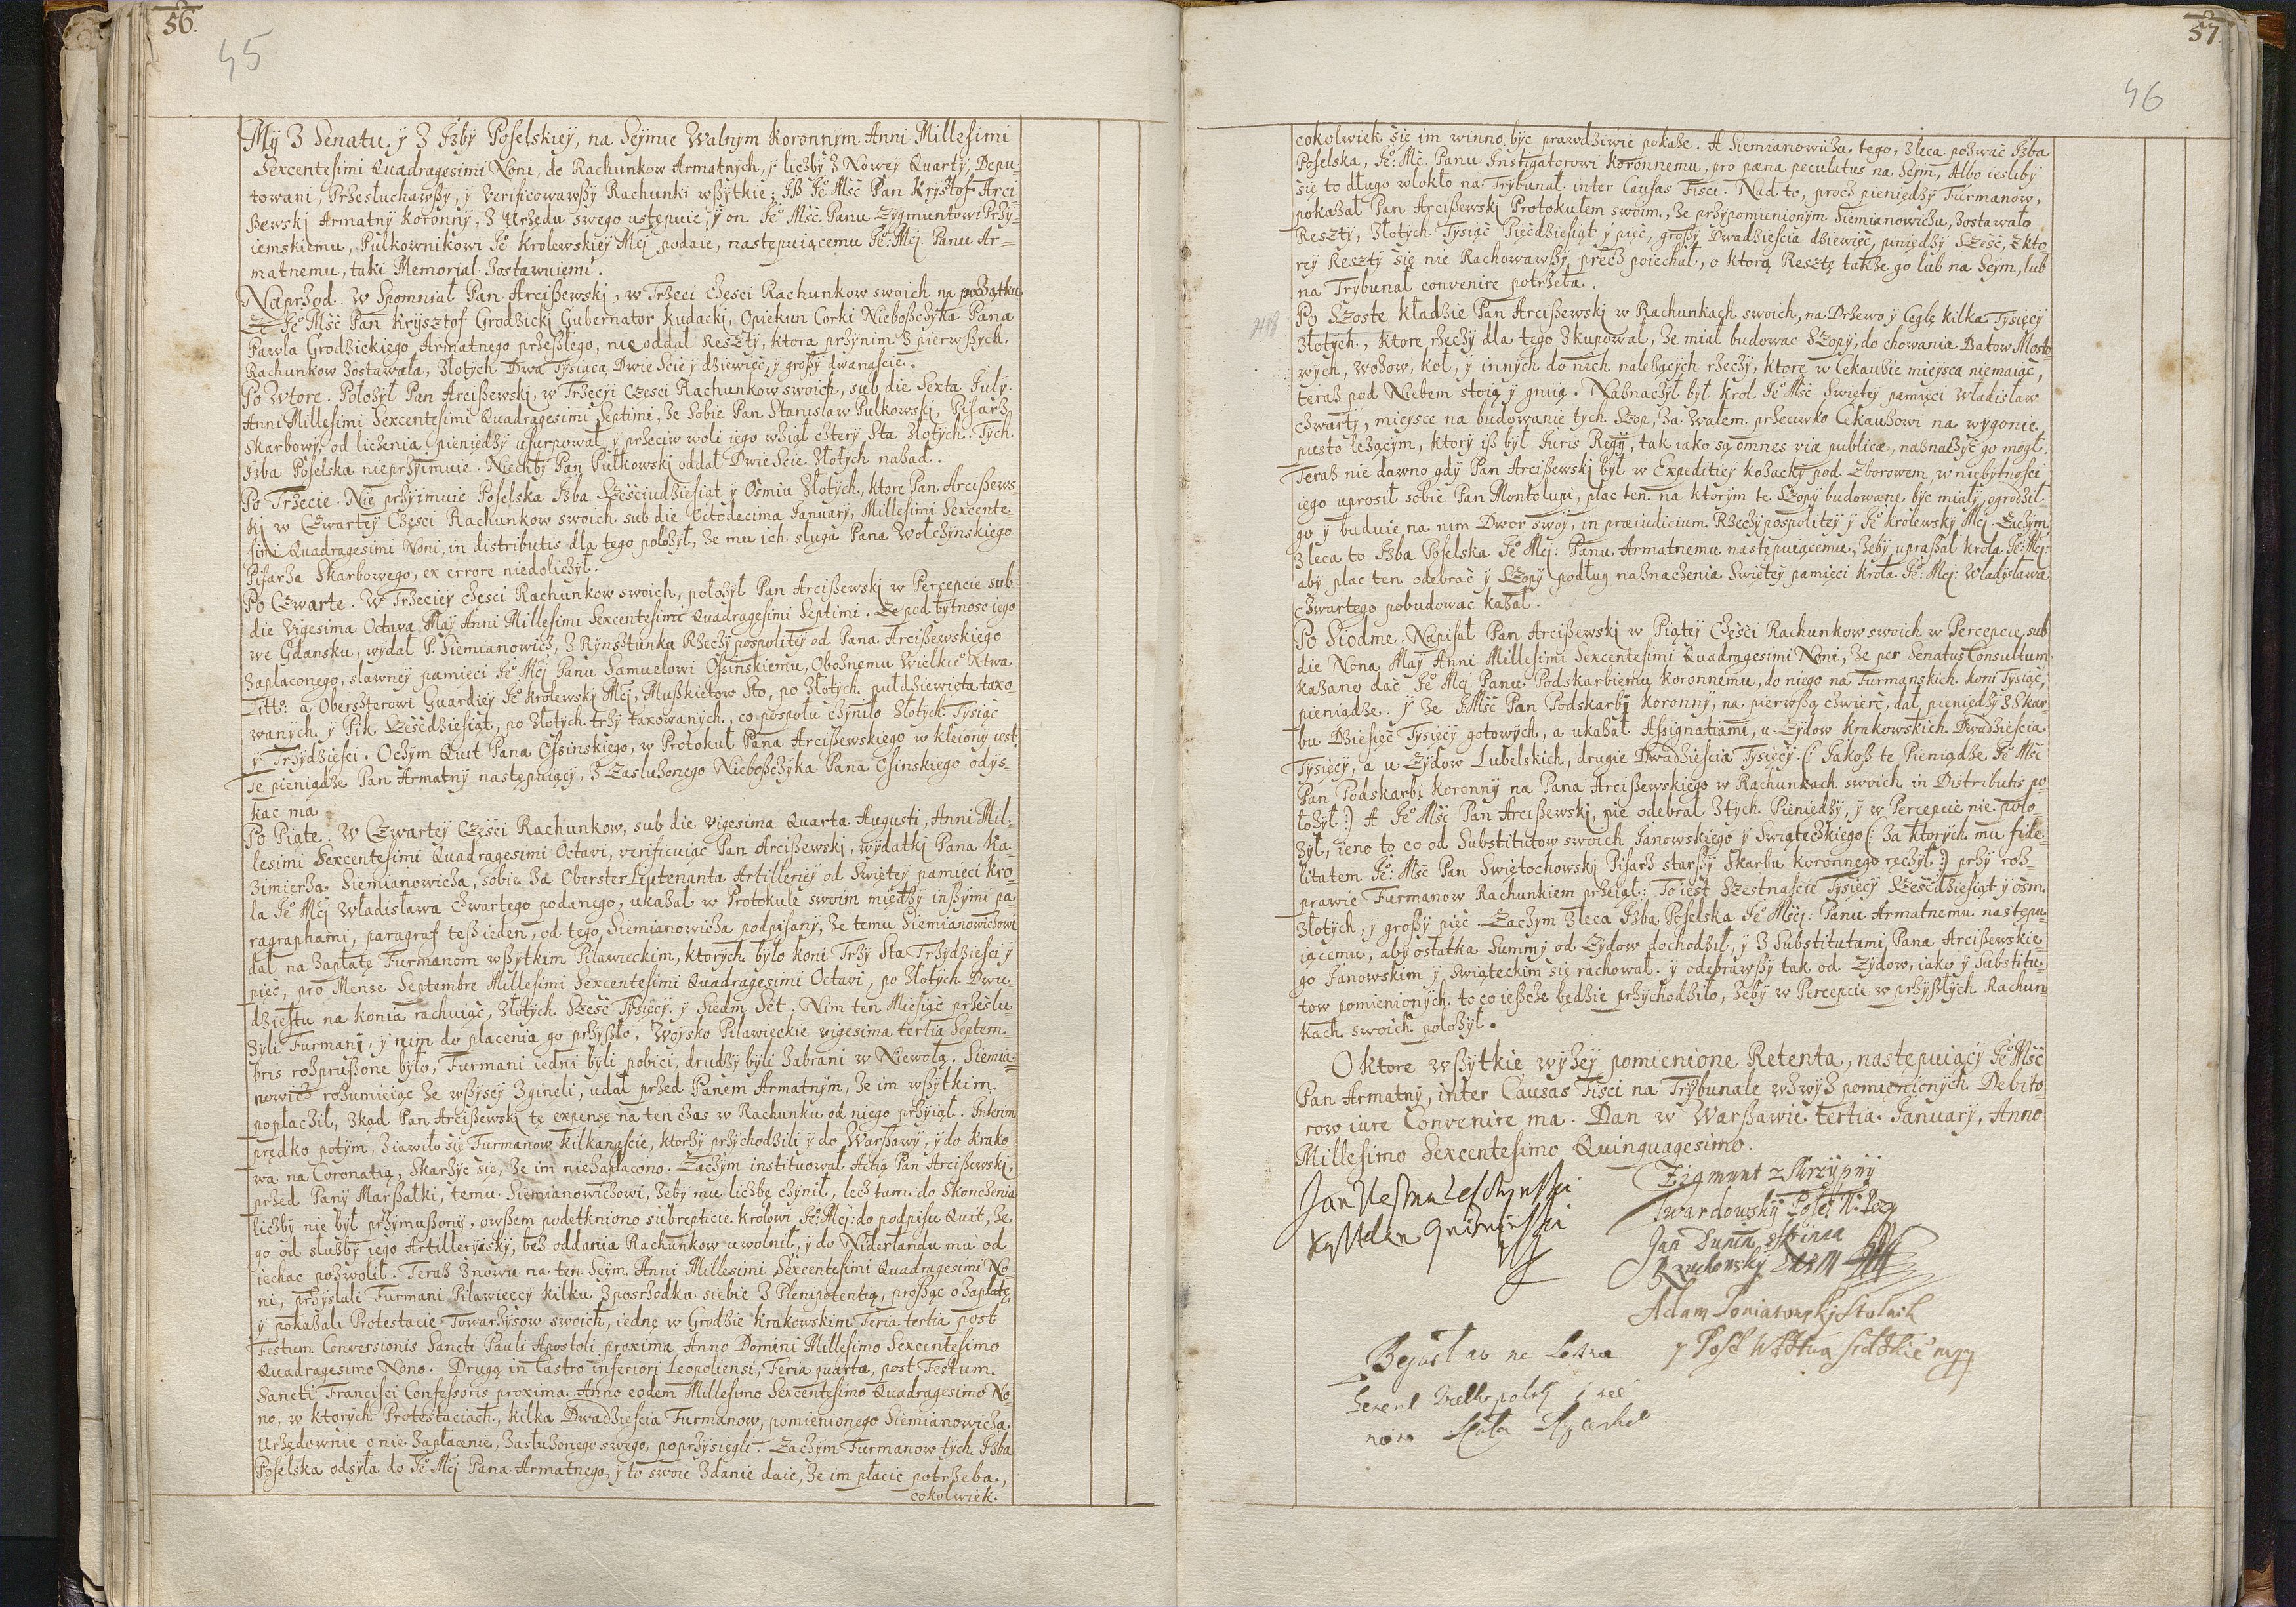 56.
45
My Z Senatu y Z Izby Poselskiey, na Seymie Walnym Koronnym Anni Millesimi
Sexcentesimi Quadragesimi Noni, do Rachunkow Armatnych, y liczby Z Nowey Quarty, Depu-
towani, Przesłuchawszy, y Verificowawszy Rachunki wszytkie; Isz Je⁰ Mść Pan Krysztof Arci-
szewskj Armatny Koronny, Z Urzędu swego ustępuie, y on Je⁰ Mść Panu Zygmuntowi Przy-
iemskiemu, Pułkownikowi Je⁰ Krolewskiey Mcj podaie, następuiącemu Je⁰ Mcj Panu Ar-
matnemu, taki Memoriał Zostawuiemy.
Naprzod. W Spomniał Pan Arciszewskj, w Trzeci części Rachunkow swoich na początku
Że Je⁰ Mść Pan Krysztof Grodzickj Gubernator Kudackj, Opiekun Corki Nieboszczyka Pana
Pawła Grodzickiego Armatnego przeszłego, nie oddał Reszty, ktora przynim Z pierwszych
Rachunkow Zostawała, Złotych Dwa Tysiąca Dwie Scie y dziewięć, y groszy dwanascie.
Po Wtore. Położył Pan Arciszewskj, w Trzeciy Części Rachunkow swoich, sub die Sexta July
Anni Millesimi Sexcentesimi Quadragesimi Septimi, Że Sobie Pan Stanisław Pułkowskj, Pisarz
Skarbowy, od liczenia pieniędzy usurpował, y przeciw woli iego wziął cztery Sta Złotych. Tych
Izba Poselska nieprzyimuie. Niechby Pan Pułkowskj oddał Dwie Scie Złotych nazad.
Po Trzecie. Nie przyimuie Poselska Izba Sześciudziesiąt y Ośmiu Złotych, ktore Pan Arciszews-
kj w Czwartey Części Rachunkow swoich sub die Octodecima January, Millesimi Sexcente-
simi Quadragesimi Noni, in distributis dla tego położył, że mu ich sługa Pana Wołczynskiego
Pisarza Skarbowego, ex errore niedoliczył.
Po Czwarte. W Trzeciey części Rachunkow swoich, położył Pan Arciszewskj w Percepcie sub
die Vigesima Octava May Anni Millesimi Sexcentesimi Quadragesimi Septimi. Że pod bytnosc iego
we Gdansku, wydał P. Siemianowicz, Z Rynsztunku Rzeczypospolitey od Pana Arciszewskiego
Zapłaconego, sławney pamięci Je⁰ Mcj Panu Samuelowi Osinskiemu, Oboznemu Wielkie⁰ Xtwa
Litt⁰: a Obersterowi Guardiey Je⁰ Krolewsky Mcj, Muszkietow Sto, po Złotych pułdziewięta taxo-
wanych y Pik Sześćdziesiąt, po Złotych trzy taxowanych, co pospołu czyniło Złotych Tysiąc
y Trzydziesci. Oczym Quit Pana Osinskiego, w Protokuł Pana Arciszewskiego w kleiony iest.
Te pieniądze Pan Armatny następuiący, Z Zasłużonego Nieboszczyka Pana Osinskiego odys-
kac ma.
Po Piąte. W Czwartey Części Rachunkow, sub die vigesima Quarta Augusti, Anni Mil-
lesimi Sexcentesimi Quadragesimi Octavi, verificuiąc Pan Arciszewskj, wydatkj Pana Ka-
zimierza Siemianowicza, sobie Za Oberster Liutenanta Artilleriey od Swiętey pamięci Kro-
la Je⁰ Mcj Władisława czwartego podanego, ukazał w Protokule swoim między inszymi pa-
ragraphami, paragraf tesz ieden, od tego Siemianowicza podpisany, Że temu Siemianowiczowi
dał na Zapłatę Furmanom wszytkim Pilawieckim, ktorych było koni Trzy Sta Trzydziesci y
pięć, pro Mense Septembre Millesimi Sexcentesimi Quadragesimi Octavi, po Złotych Dwu-
dziestu na konia rachuiąc, Złotych Sześć Tysięcy y Siedm Set. Nim ten Miesiąc przesłu-
żyli Furmani, y nim do płacenia go przyszło, Woysko Pilawieckie vigesima tertia Septem-
bris rozpruszone było, Furmani iedni byli pobici, drudzy byli Zabrani w Niewolą. Siemia-
nowicz rozumieiąc że wszyscy Zgineli, udał przed Panem Armatnym, że im wszytkim
popłacił, Zkąd Pan Arciszewskj tę expensę na ten czas w Rachunku od niego przyiął. Interim
prędko potym, Ziawiło się Furmanow kilkanascie, ktorzy przychodzili y do Warszawy, y do Krako-
wa na Coronatią, Skarżyc się, że im nie Zapłacono. Zaczym instituował Actią Pan Arciszewskj,
przed Pany Marszałki, temu Siemianowiczowi, żeby mu liczbę czynił, lecz tam do Skonczenia
liczby nie był przymuszony, owszem podetkniono subrepticie Krolowi Je⁰ Mcj: do podpisu Quit, Że
go od służby iego Artilleryisky, bez oddania Rachunkow uwolnił, y do Niderlandu mu od-
iechac pozwolił. Teraz Znowu na ten Seym Anni Millesimi Sexcentesimi Quadragesimi No-
ni, przysłali Furmani Pilawieccy kilku Z posrzodka siebie Z Plenipotentią, prosząc o Zapłatę,
y pokazali Protestacie Towarzysow swoich, iednę w Grodzie Krakowskim Feria tertia post
Festum Conversionis Sancti Pauli Apostoli proxima Anno Domini Millesimo Sexcentesimo
Quadragesimo Nono. Drugą in Castro inferiori Leopoliensi, Feria quarta, post Festum
Sancti Francisci Confessoris proxima Anno eodem Millesimo Sexcentesimo Quadragesimo No-
no, w ktorych Protestaciach, kilka Dwadziescia Furmanow, pomienionego Siemianowicza
Urzędownie o nie Zapłacenie, Zasłużonego swego, poprzysięgli. Zaczym Furmanow tych Izba
Poselska odsyła do Je⁰ Mcj Pana Armatnego, y to swoie Zdanie daie, Że im płacic potrzeba,
cokolwiek.
57.
46
cokolwiek się im winno być prawdziwie pokaże. A Siemianowicza tego, Zleca pozwać Izba
Poselska, Je⁰ Mc. Panu Instigatorowi Koronnemu, pro pæna peculatus na Seym, Albo iesliby
się to długo wlokło na Trybunał inter Causas Fisci. Nad to, procz pieniędzy Furmanow,
pokazał Pan Arciszewskj Protokułem swoim, Że przypomienionym Siemianowiczu, Zostawało
Reszty, Złotych Tysiąc Pięćdziesiąt y pięć, groszy Dwadziescia dziewięć, piniędzy Sześć, Z kto-
rey Reszty się nie Rachowawszy, precz poiechał, o ktorą Resztę także go lub na Seym, lub
na Trybunał convenire potrzeba.
Po Szoste kładzie Pan Arciszewskj w Rachunkach swoich, na Drzewo y Cegłę kilka Tysięcy
Złotych, ktore rzeczy dla tego Zkupował, Że miał budowac Szopy, do chowania Batow Mosto-
wych, wozow, koł, y innych do nich należących rzeczy, ktore w Cekauzie mieysca niemaiąc,
teraz pod Niebem stoią y gniią. Naznaczył był Krol Je⁰ Mść Swiętey pamięci Władisław
czwarty, mieysce na budowanie tych Szop, Za Wałem przeciwko Cekauzowi na wygonie,
pusto leżącym, ktory isz był Iuris Regij, tak iako są omnes viæ publicæ, naznaczyć go mogł.
Teraz nie dawno gdy Pan Arciszewskj był w Expeditiey kozacky pod Zborowem, w niebytnosci
iego uprosił sobie Pan Montolupi, plac ten na ktorym te Szopy budowane być miały, ogrodził
go y buduie na nim Dwor swoy, in præiudicium Rzeczypospolitey y Je⁰ Krolewsky Mcj. Zaczym
Zleca to Izba Poselska Je⁰ Mcj: Panu Armatnemu następuiącemu, żeby upraszał Krola Je⁰: Mcj:
aby plac ten odebrac y Szopy podług naznaczenia Swiętey pamięci Krola Je⁰: Mcj: Władysława
czwartego pobudowac kazał.
Po Siodme. Napisał Pan Arciszewskj w Piątey Części Rachunkow swoich w Percepcie, sub
die Nona May Anni Millesimi Sexcentesimi Quadragesimi Noni, Że per Senatus Consultum
kazano dać Je⁰ Mcj Panu Podskarbiemu Koronnemu, do niego na Furmanskich koni Tysiąc,
pieniądze. Y Że JMść Pan Podskarby Koronny, na pierwszą czwierć, dał pieniędzy Z Skar-
bu Dziesięć Tysięcy gotowych, a ukazał Assignatiami, u Żydow Krakowskich Dwadziescia
Tysięcy, a u Żydow Lubelskich, drugie Dwadziescia Tysięcy (: Jakosz te Pieniądze Je⁰ Mść
Pan Podskarbi Koronny na Pana Arciszewskiego w Rachunkach swoich in Distributis po-
łożył :) A Je⁰ Mść Pan Arciszewskj, nie odebrał Z tych Pieniędzy, y w Percepcie nie poło-
żył, ieno to co od Substitutow swoich Janowskiego y Swiąteczkiego (: Za ktorych mu fide-
litatem Je⁰: Mść Pan Swiętochowskj Pisarz starszy Skarbu Koronnego ręczył :) przy roz-
prawie Furmanow Rachunkiem przeiął: To iest Szesnascie Tysięcy Sześćdziesiąt y ośm
Złotych, y groszy pięć. Zaczym Zleca Izba Poselska Je⁰ Mści: Panu Armatnemu następu-
iącemu, aby ostatka Summy od Żydow dochodził, y Z Substitutami Pana Arciszewskie-
go Janowskim y Swiąteckim się rachował. y odebrawszy tak od Żydow, iako y Substitu-
tow pomienionych to co ieszcze będzie przychodziło, żeby w Percepcie w przyszłych Rachun-
kach swoich położył.
O ktore wszytkie wyżey pomienione Retenta, następuiący Je⁰ Mść
Pan Armatny, inter Causas Fisci na Trybunale wzwyż pomienionych Debito-
row iure Convenire ma. Dan w Warszawie tertia January, Anno
Millesimo Sexcentesimo Quinquagesimo.
Zigmunt z Skrzypny
Twardowsky
Jan Dunin
Adam Poniatowskj Stolnik